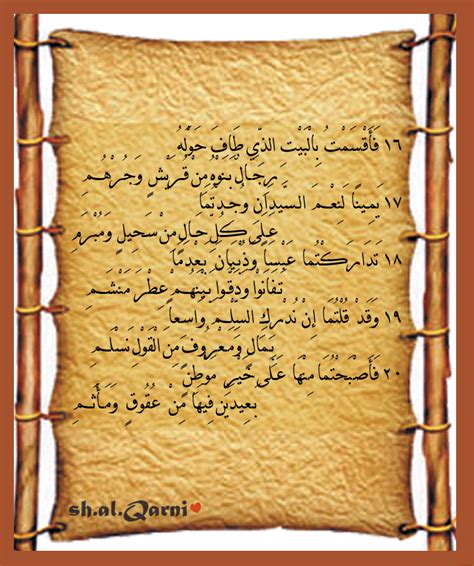 ١٦ فَأَقْسَمْتُ بِالْبَيْتِ الذِّي طَافَ حَوْلَهُ
رِجَالٌ بَنَوْهُ مِنْ قُرَيْشٍ وَجُرْهُمِ
١٧ يَمِينًا لَنِعْمَ السيدَانِ وُجِدتُمَا
عَلَى كُلِّ حَالٍ مِنْ سَحِيلٍ وَمُبْرَمِ
١٨ تَدَارَكْتُمَا عَبْسًا وَذُبْيَانَ بَعْدَمَا
تَفَانَوْا وَدَقُّوا بَيْنَهُمْ عِطْرَ مَنْشَمِ
١٩ وَقَدْ قُلْتُمَا إِنْ نُدْرِكِ السِّلْمَ وَاسعاً
بِمَالٍ وَمَعْرُوفٍ مِنَ القَوْلِ نَسْلَمِ
٢٠ فَأَصْبَحْتُمَا مِنْهَا عَلَى خَيْرِ مَوْطِنٍ
بَعِيدَيْنِ فِيهَا مِنْ عُقُوقٍ وَمَأْثَمِ
sh.al.Qarni